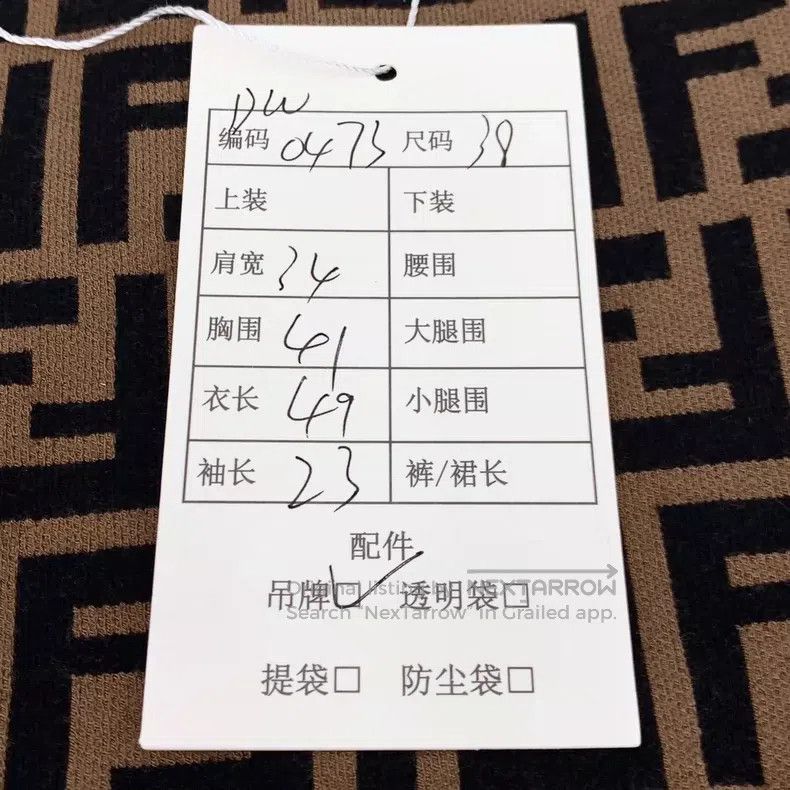 DW
编码 0473 尺码 38
上装 下装
肩宽 34 腰围
胸围 41 大腿围
衣长 49 小腿围
袖长 23 裤/裙长
配件
吊牌☑ 透明袋□
NEXTARROW
Search "NexTarrow" in Grailed app.
提袋□ 防尘袋□